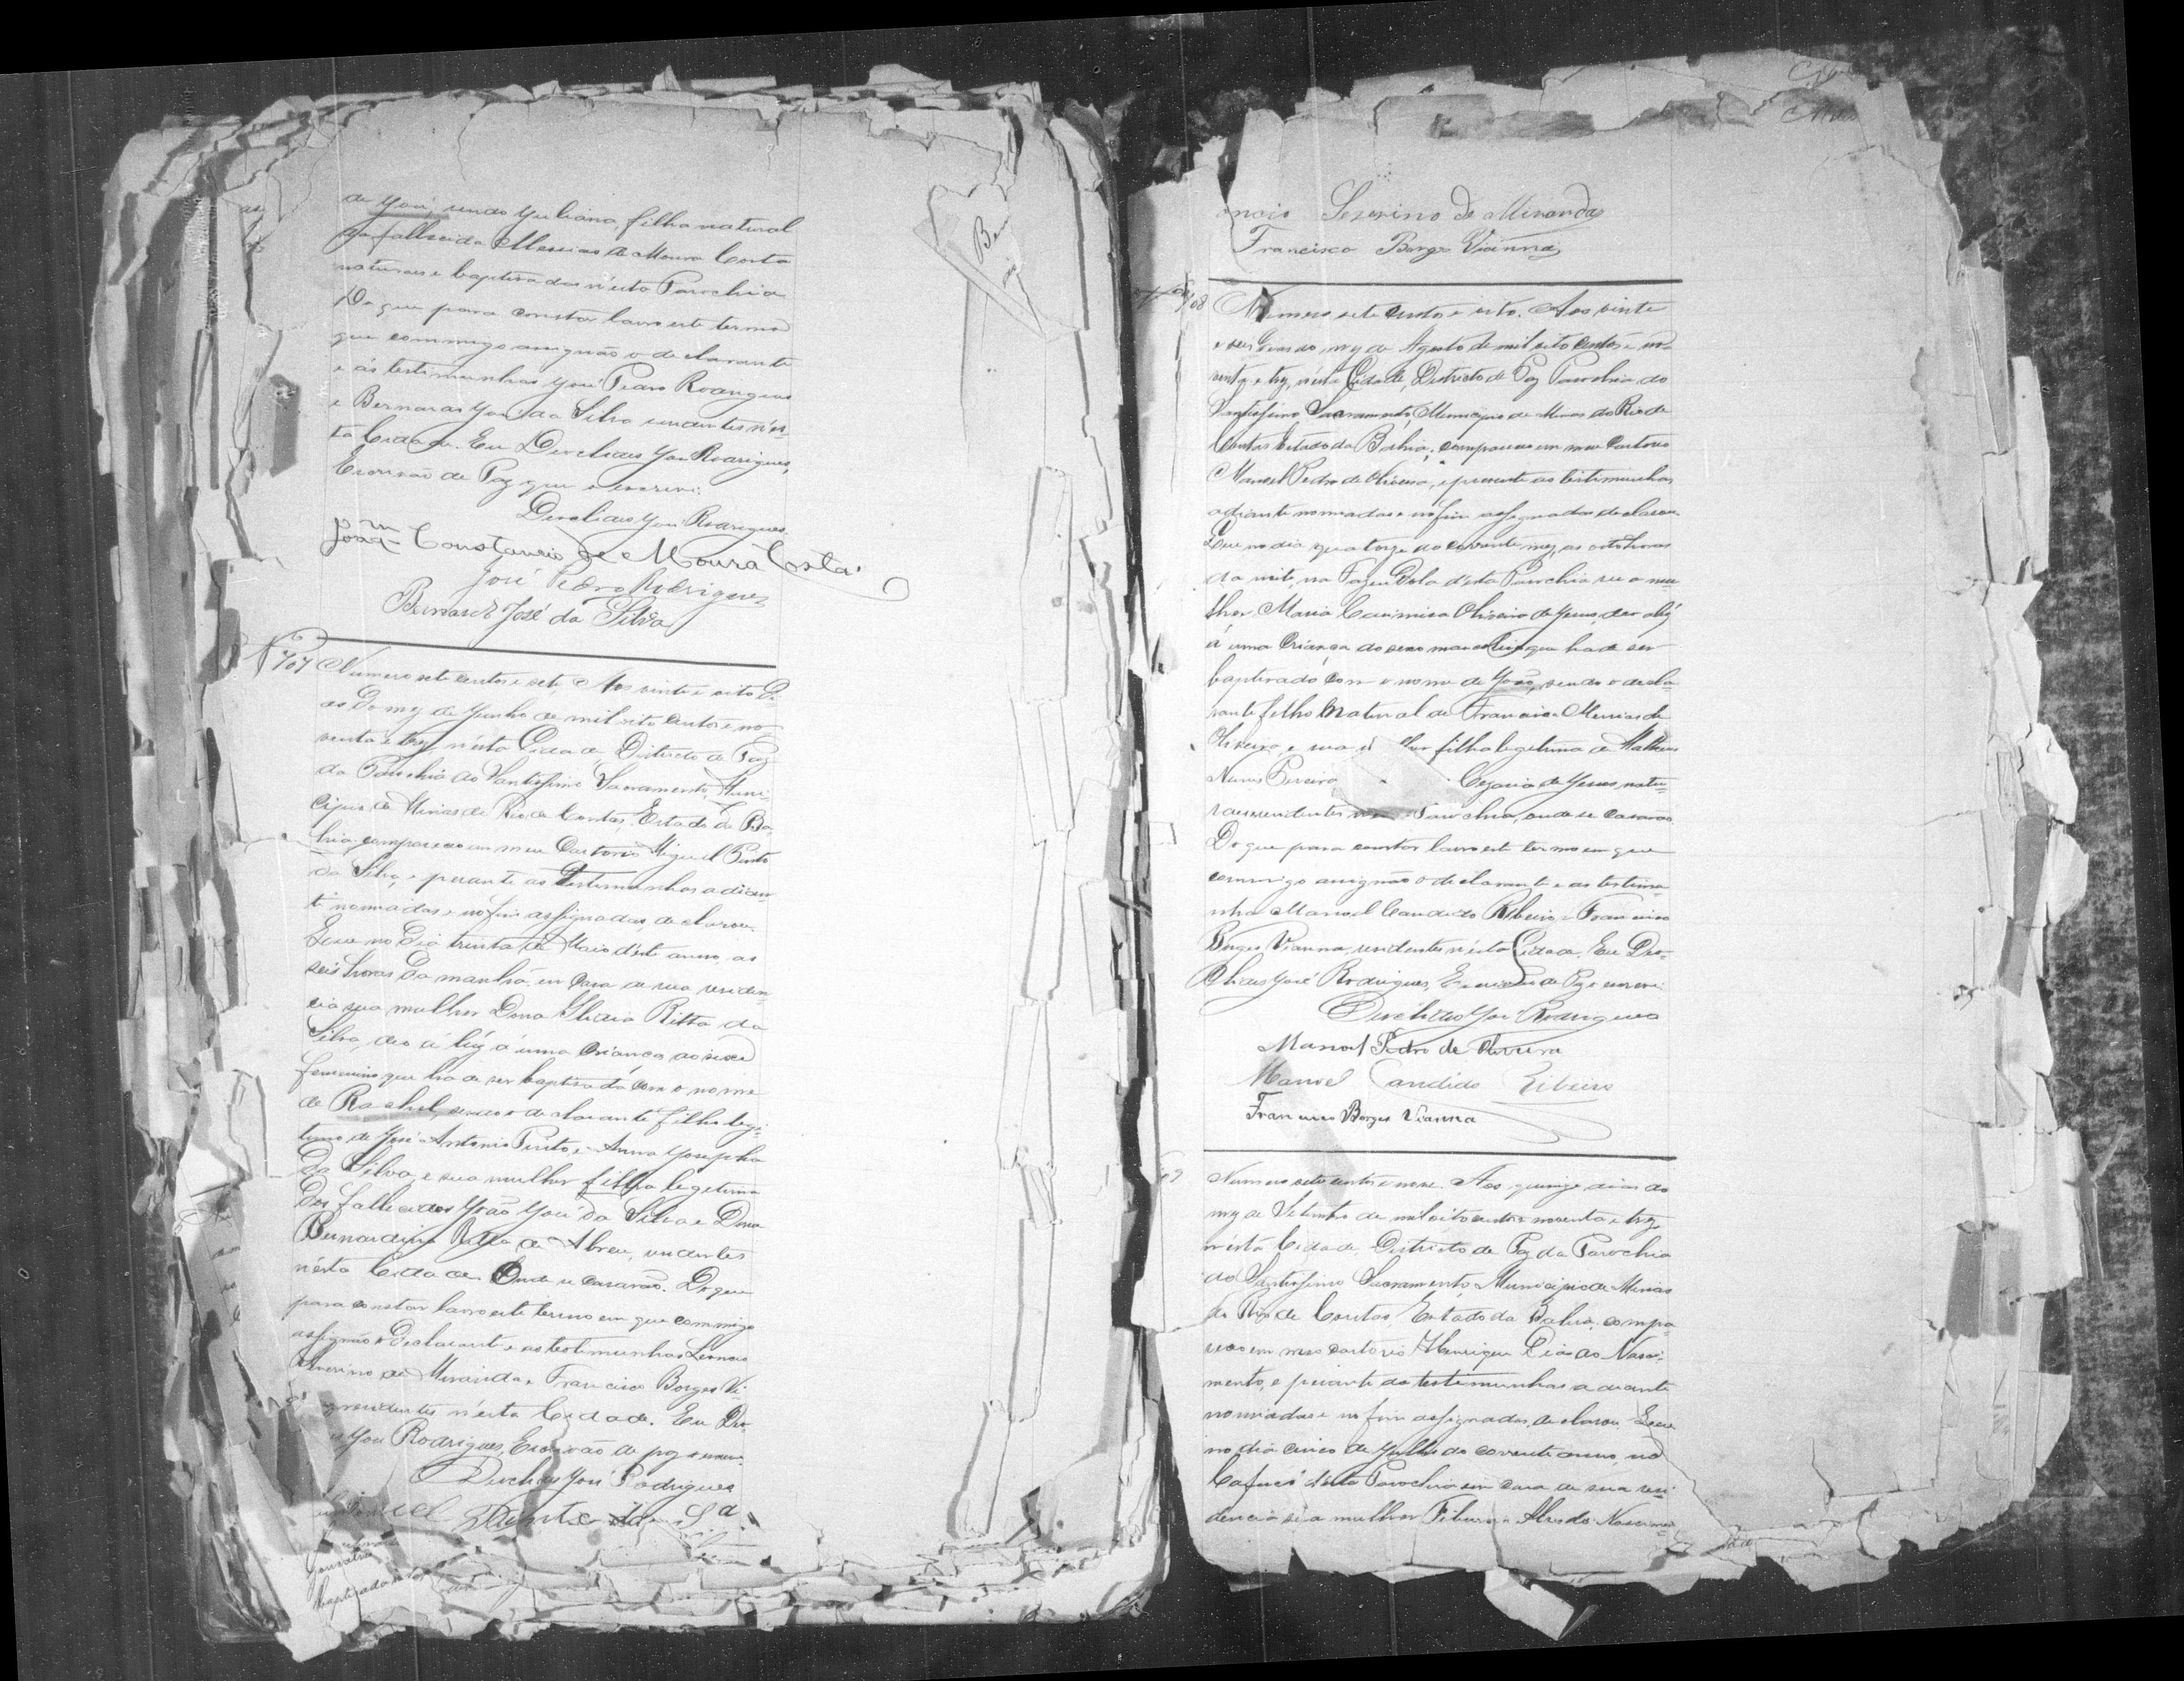 de José, sendo Juliana, filha natural
da fallecida Messias de Moura Costa
naturaes e baptisados n'esta Parochia
Do que para constar lavro este termo
que commigo assignão o declarante
e ás testimunhas José Pedro Rodrigues
e Bernardo José da Silva residentes n'es-
ta Cidade. Eu Deoclides José Rodrigues,
Escrivão de Paz que o escrevi.
Deoclides José Rodrigues
Joaqm Constancio de Moura Costa
José Pedro Rodrigues
Bernardo José da Silva
N 707 Numero sete centos e sete. Aos vinte e oito Di
as Do mez de Junho de mil oito centos e no-
venta e trez, n'esta Cidade, Districto de Paz
da Parochia do Santissimo Sacramento, Muni-
cipio de Minas do Rio de Contas, Estado da Ba
hia, compareceo em meu Cartorio Miguel Pinto
da Silva, e perante as Testimunhas adian-
te nomiadas e no fim assignadas, declarou.
Que no Dia trinta de Maio d'este anno, as
seis horas Da manhã, em casa de sua residen-
cia sua mulher Dona Ilidia Ritta da
Silva, deo á luz á uma Criança do sexo
femenino que ha de ser baptisada com o nome
de Rachel, sendo o declarante filho legi-
timo de José Antonio Pinto e Anna Josepha
Da Silva, e sua mulher filha legitima
Dos fallecidos João José da Silva e Dona
Bernardina Ritta de Abreu, residentes
n'esta Cidade Onde se casarão. Do que
para constar lavro este termo em que commigo
assignão o Declarante e as testimunhas Leoncio
Severino de Miranda e Francisco Borges Vi-
residentes n'esta Cidade. Eu Deo-
José Rodrigues, Escrivão de paz o escrevi.
Deoclides José Rodrigues
Miguel Pinto da Sa
baptisado
Ben
oncio Severino de Miranda
Francisco Borges Vianna
708 Numero sete centos e oito. Aos vinte
e seis dias do mez de Agosto de mil oito centos e no-
venta e trez, n'esta Cidade, Districto de Paz Parochia do
Santissimo Sacramento, Municipio de Minas do Rio de
Contas Estado da Bahia, compareceo em meu Cartorio
Manoel Pedro de Oliveira, e perante as testimunhas
adiante nomiadas e no fim assignadas declarou.
Que no dia quatorze do corrente mez, as oito horas
da noite, na Fazenda d'esta Parochia sua mu-
lher Maria Casimira Oliveira de Jesus, deo a luz
á uma Criança do sexo masculino que hade ser
baptisado com o nome de João, sendo o decla-
rante filho Natural de Francisca Messias de
Oliveira, e sua filha legitima de Matheus
Nunes Pereira Cezaria de Jesus, natu-
raes residentes Parochia, onde se casarão.
Do que para constar lavro este termo em que
commigo assignão o declarante e as testimu-
nhas Manoel Candido Ribeiro e Francisco
Borges Vianna residentes n'esta Cidade. Eu Deo-
clides José Rodrigues, Escrivão de Paz o escrevi.
Deoclides José Rodrigues
Manoel Pedro de Oliveira
Manoel Candido Ribeiro
Francisco Borges Vianna
Numero sete centos e nove. Aos quinze dias do
mez de Setembro de mil oito centos e noventa e trez,
n'esta Cidade, Districto de Paz da Parochia
do Santissimo Sacramento, Municipio de Minas
do Rio de Contas, Estado da Bahia, compa-
receo em meu Cartorio Henrique Dias do Nasci-
mento, e perante as testimunhas adiante
nomiadas e no fim assignadas, declarou. Que
no dia cinco de Julho do corrente anno, no
d'esta Parochia em casa de sua resi-
dencia sua mulher Tiburcia Alves do Nascimen-